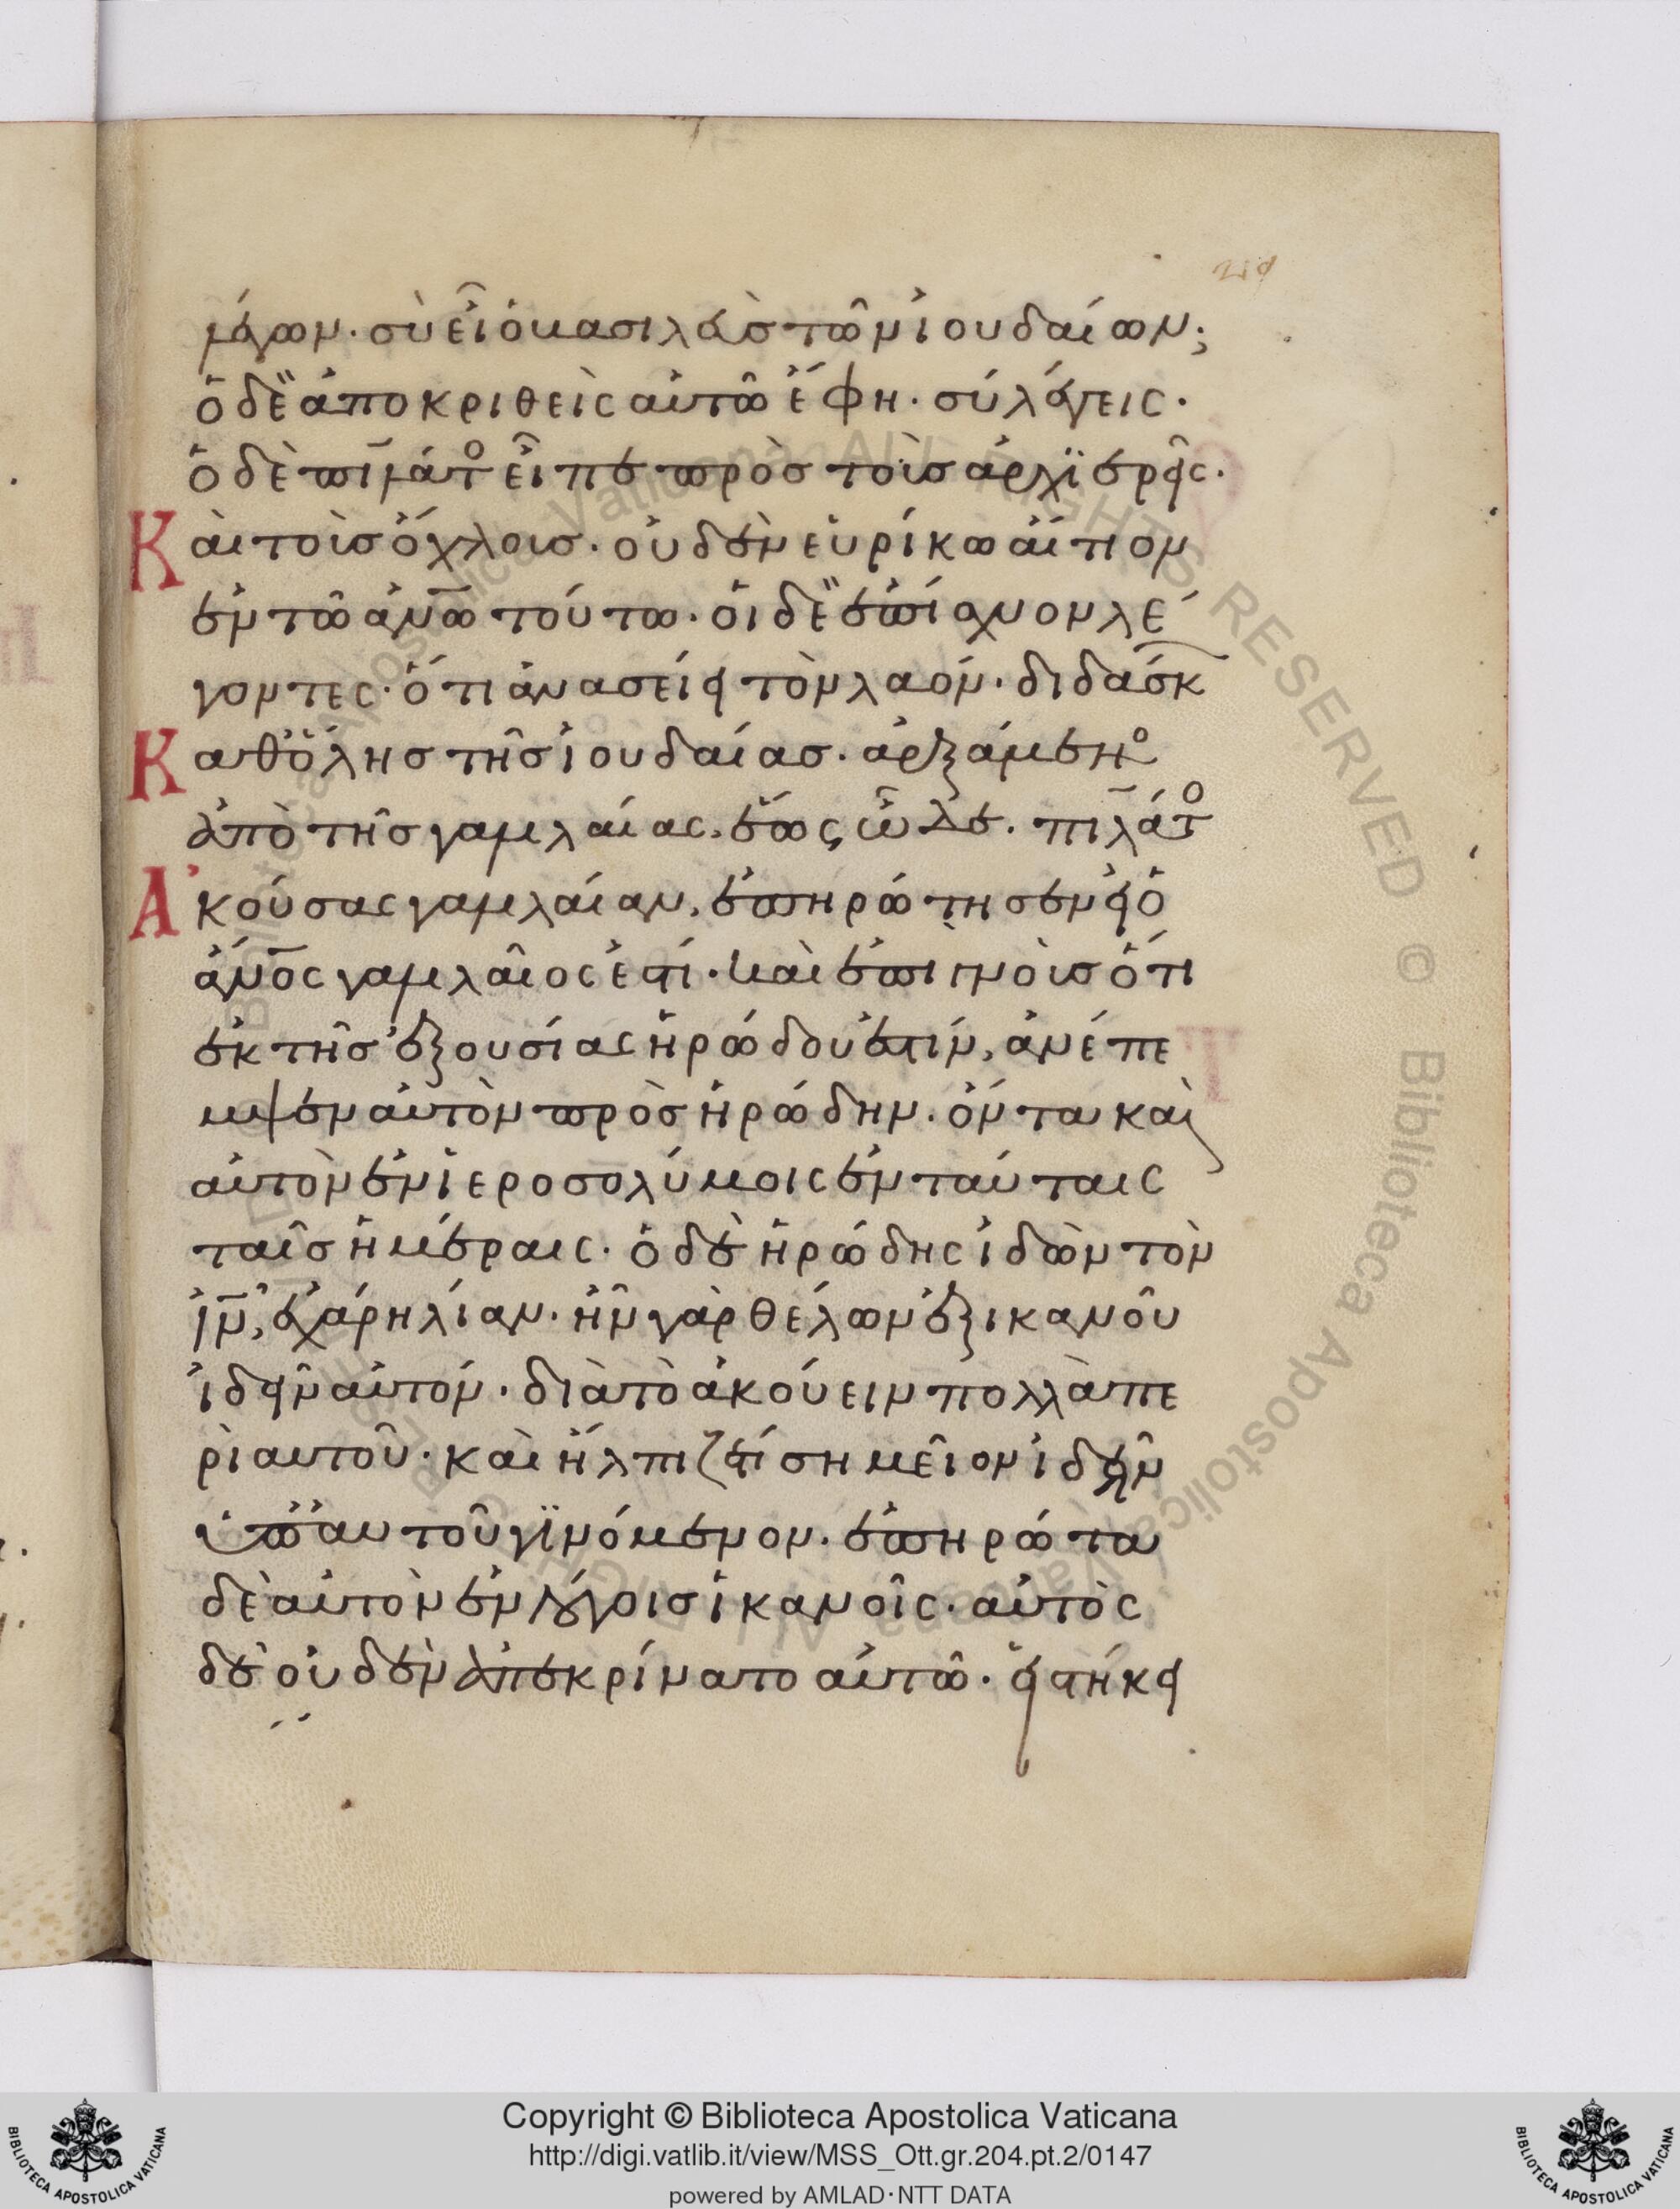 λέγων· σὺ εἶ ὁ βασιλεὺς τῶν ἰουδαίων;
ὁ δὲ ἀποκριθεὶς αὐτῶ ἔφη· σύ λέγεις·
ὁ δὲ πιλάτο εἶπε πρὸς τοὺς ἀρχϊερεῖς·
Καὶ τοὺς ὄχλους· οὐδὲν εὑρίκω αἴτιον
ἐν τῶ ἀνω τούτω· οἱ δὲ ἐπίσχυον λέ
γοντες· ὅτι ἀνασείει τὸν λαόν· διδάσκ
Καθ ὅλης τῆς ἰουδαίας· ἀρξάμενο
ἀπὸ τῆς γαλιλαίας, ἕως ὧδε· πιλάτο
Ἀκούσας γαλιλαίαν, ἐπηρώτησεν εἰ ὁ
ἄνος γαλιλαῖος ἐστί· καὶ ἐπιγνοὺς ὅτι
ἐκ τῆς ἐξουσίας ἡρώδου ἐστίν, ἀνέπε
μψεν αὐτὸν πρὸς ἡρώδην· ὄντα καὶ
αὐτὸν ἐν ἱεροσολύμοις ἐν ταύταις
ταῖς ἡμέραις· ὁ δὲ ἡρώδης ἰδὼν τὸν
ἰν, ἐχάρη λίαν· ἦν γὰρ θέλων ἐξ ἱκανοῦ
ἰδεῖν αὐτόν· διὰ τὸ ἀκούειν πολλὰ πε
ρὶ αυτοῦ· καὶ ἤλπιζέ τί σημεῖον ἰδεῖν
ὑπ αυτοῦ γϊνόμενον· ἐπηρώτα
δὲ αὐτὸν ἐν λόγοις ἱκανοῖς· αὐτὸς
δὲ οὐδὲν ἀπεκρίνατο αὐτῶ· εἱστήκει
Copyright © Biblioteca Apostolica Vaticana
http://digi.vatlib.it/view/MSS_Ott.gr.204.pt.2/0147
powered by AMLAD·NTT DATA